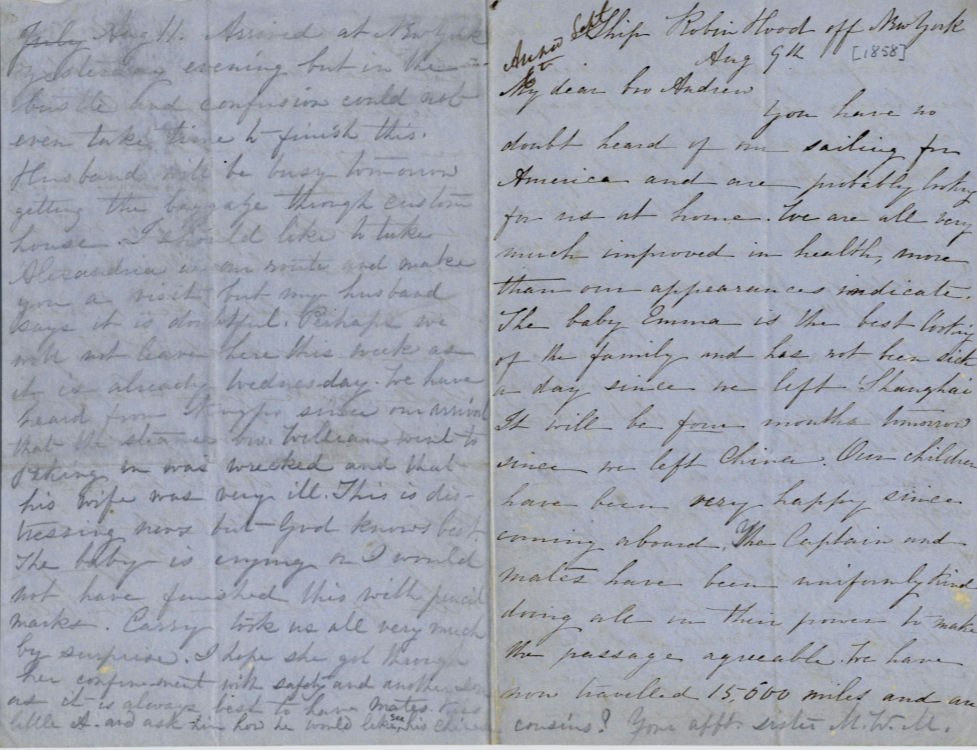 Ship Robin Hood off New York
Aug 9th [1858]
My dear bro Andrew
You have no
doubt heard of our sailing for
America and are probably looking
for us at home. We are all very
much improved in health, more
than our appearances indicate.
The baby Emma is the best looking
of the family and has not been sick
a day since we left Shanghai
It will be four months tomorrow
since we left China. Our children
have been very happy since
coming aboard. The Captain and
mates have been uniformly kind
doing all in their power to make
the passage agreeable. We have
now travelled 15,000 miles and are
July Aug 11. Arrived at New York
yesterday evening but in the
bustle and confusion could not
even take time to finish this.
Husband will be busy tomorrow
getting the baggage through custom
house. I should like to take
Alexandria in our route and make
you a visit but my husband
says it is doubtful. Perhaps we
will not leave here this week as
it is already Wednesday. We have
heard from Ningpo since our arrival
that the steamer bro. William went to
Peking in was wrecked and that
his wife was very ill. This is dis-
tressing news but God knows best.
The baby is crying or I would
not have finished this with pencil
marks. Carry took us all very much
by surprise. I hope she got through
her confinement with safety and another son
as it is always best to have mates.
little A. and ask him how he would like see his Chinese
cousins? Your afft sister M. W. M.